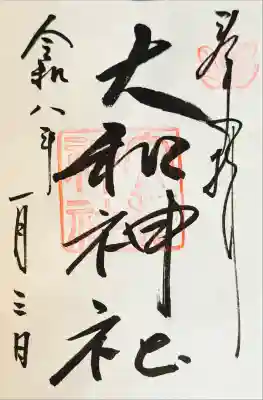 奉拝
大和神社
令和八年
一月三日